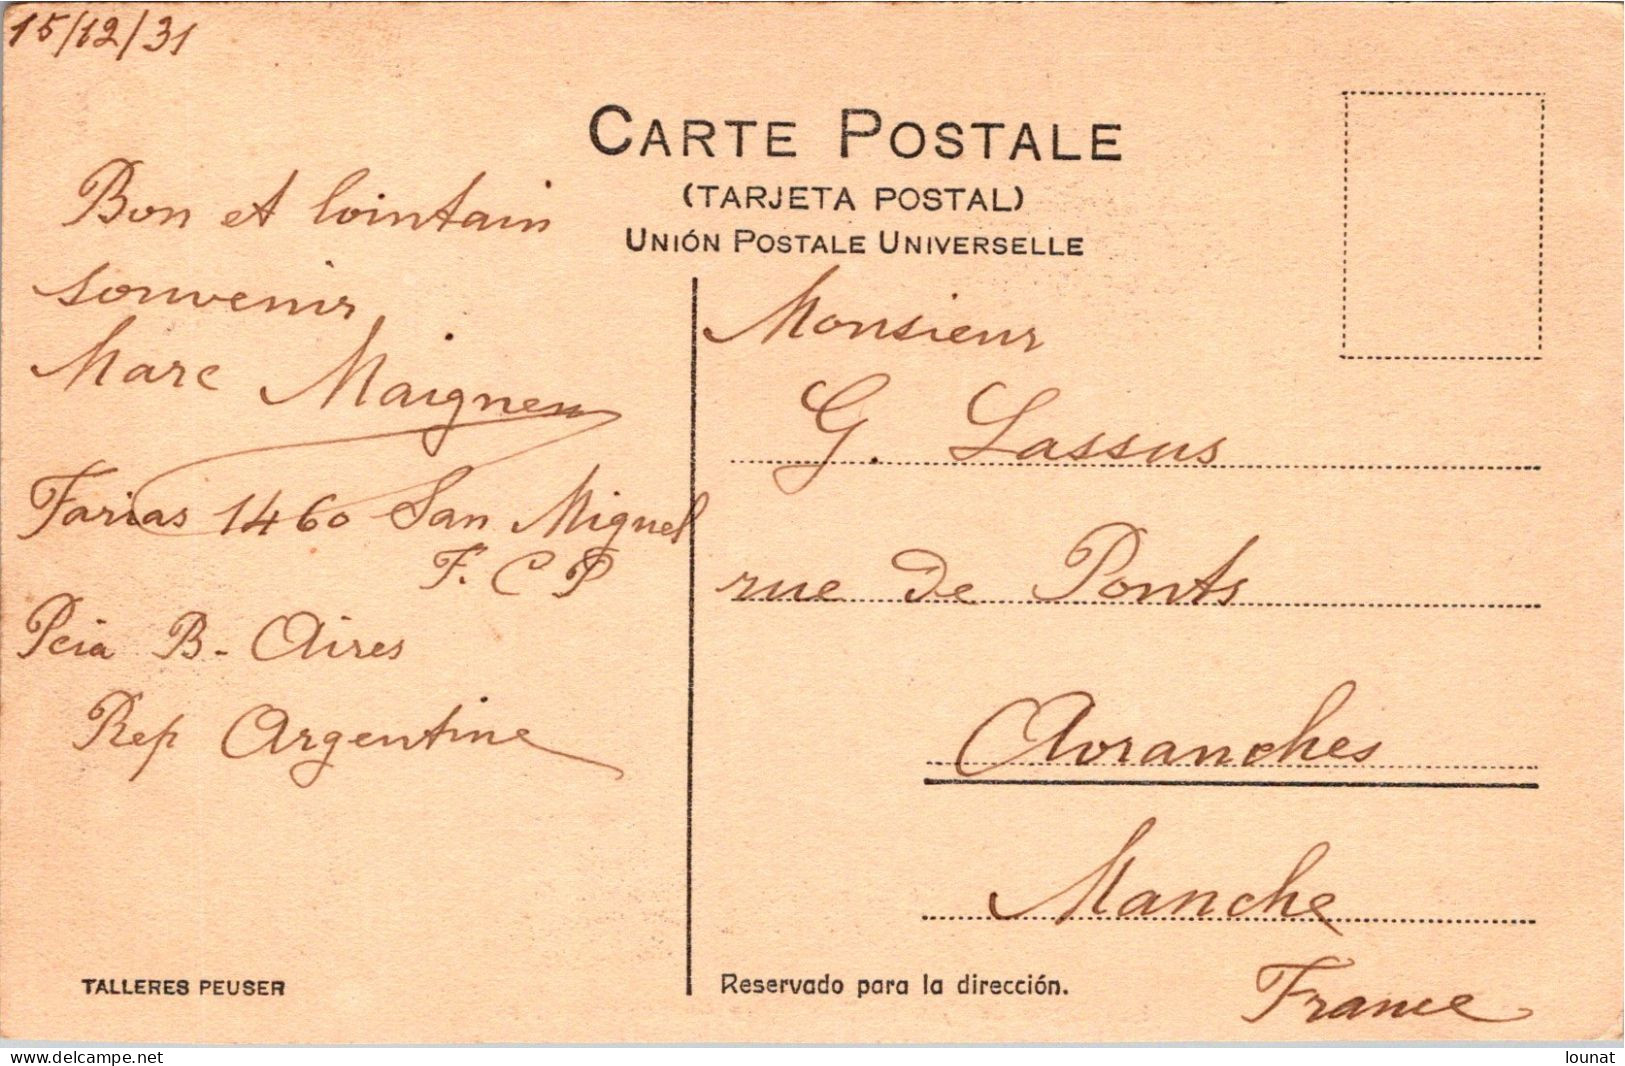 15/12/31
CARTE POSTALE
(TARJETA POSTAL)
UNIÓN POSTALE UNIVERSELLE
Bon et lointain
souvenir
Marc Maignen
Farias 1460 San Miguel
F. C P
Pcia B- Aires
Rep Argentine
TALLERES PEUSER
Monsieur
G. Lassus
rue de Ponts
Avranches
Manche
France
Reservado para la dirección.
www.delcampe.net
lounat